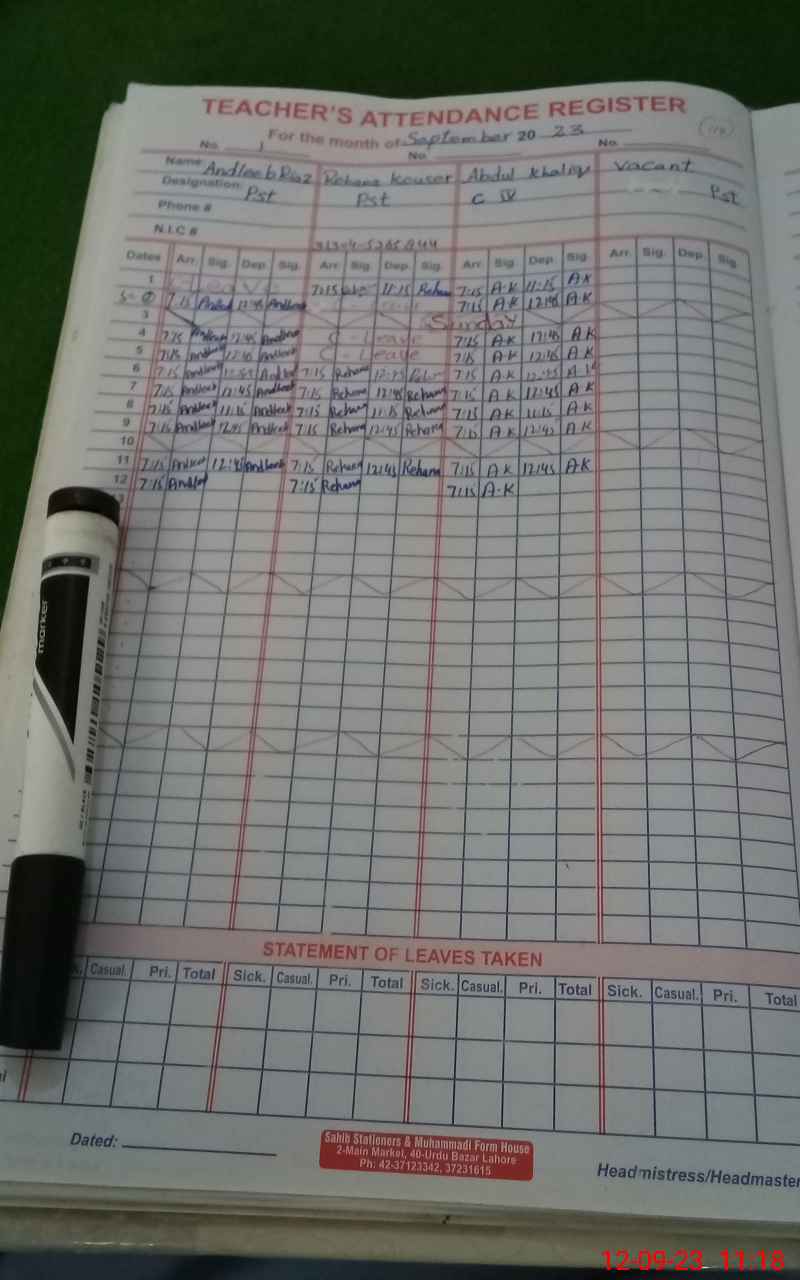 TEACHER'S ATTENDANCE REGISTER
For the month of September 20 23
No. 1 No. No.
Name Andleeb Riaz Rehana Kouser Abdul Khaliq Vacant
Designation Pst Pst C IV Pst
Phone #
N.I.C #
Dates Arr. Sig. Dep. Sig. Arr. Sig. Dep. Sig. Arr. Sig. Dep. Sig. Arr. Sig. Dep. Sig.
1 Leave 7:15 11:15 Rehana 7:15 A.K 11:15 A.K
7:15 Andleeb 12:45 Andleeb 7:15 A.K 12:45 A.K
3 Sunday
4 7:15 Andleeb 12:45 Andleeb C - Leave 7:15 A.K 12:45 A.K
5 7:15 Andleeb 12:45 Andleeb C - Leave 7:15 A.K 12:45 A.K
6 7:15 Andleeb 12:45 Andleeb 7:15 Rehana 12:45 Rehana 7:15 A.K 12:45 A.K
7 7:15 Andleeb 12:45 Andleeb 7:15 Rehana 12:45 Rehana 7:15 A.K 12:45 A.K
8 7:15 Andleeb 11:15 Andleeb 7:15 Rehana 11:15 Rehana 7:15 A.K 11:15 A.K
9 7:15 Andleeb 12:45 Andleeb 7:15 Rehana 12:45 Rehana 7:15 A.K 12:45 A.K
10
11 7:15 Andleeb 12:45 Andleeb 7:15 Rehana 12:45 Rehana 7:15 A.K 12:45 A.K
12 7:15 Andleeb 7:15 Rehana 7:15 A.K
marker
STATEMENT OF LEAVES TAKEN
Casual. Pri. Total Sick. Casual. Pri. Total Sick. Casual. Pri. Total Sick. Casual. Pri. Total
Dated:
Sahib Stationers & Muhammadi Form House
2-Main Market, 40-Urdu Bazar Lahore
Ph: 42-37123342, 37231615
Headmistress/Headmaster
12-09-23 11:18